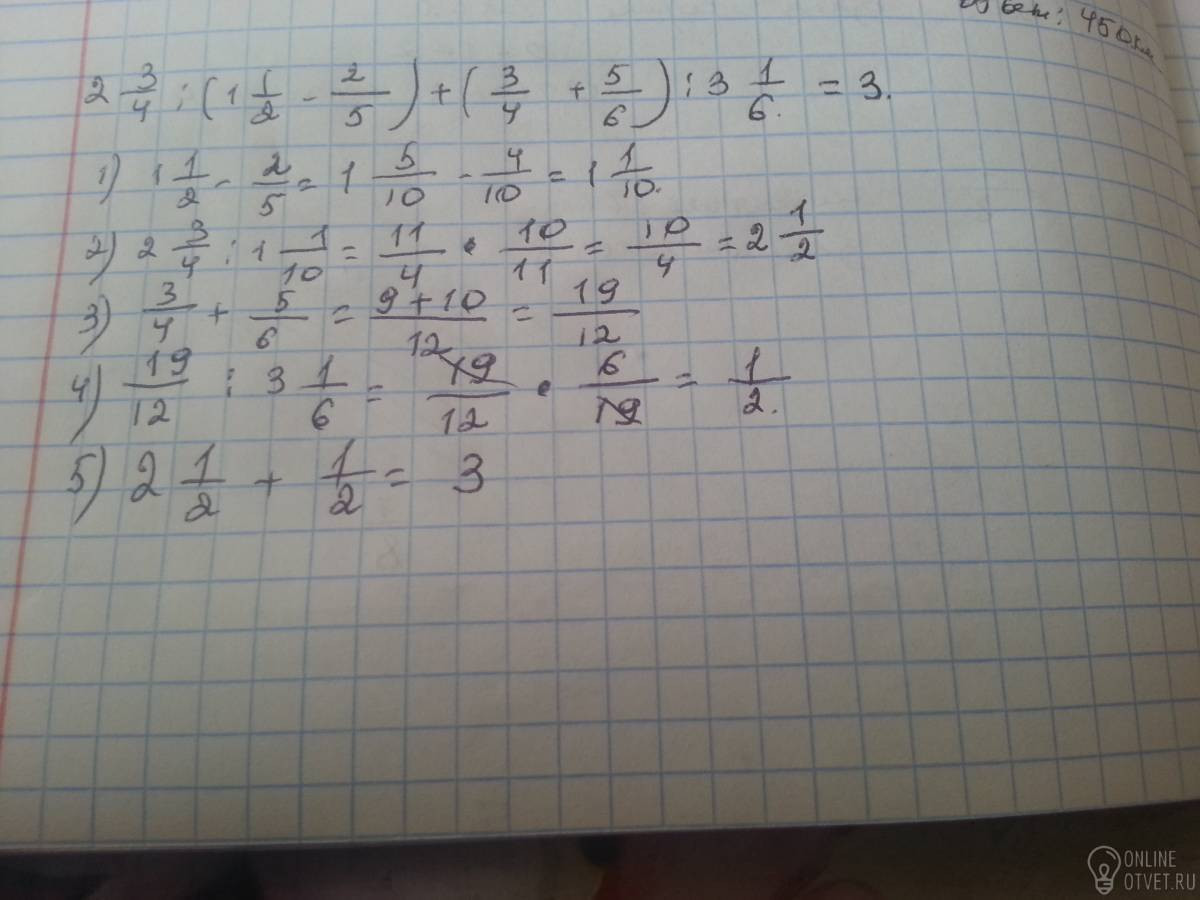 Ответ: 450 км
2 3/4 : (1 1/2 - 2/5) + (3/4 + 5/6) : 3 1/6. = 3.
1) 1 1/2 - 2/5 = 1 5/10 - 4/10 = 1 1/10.
2) 2 3/4 : 1 1/10 = 11/4 · 10/11 = 10/4 = 2 1/2
3) 3/4 + 5/6 = 9+10/12 = 19/12
4) 19/12 : 3 1/6 = 19/12 · 6/19 = 1/2.
5) 2 1/2 + 1/2 = 3
ONLINE
OTVET.RU